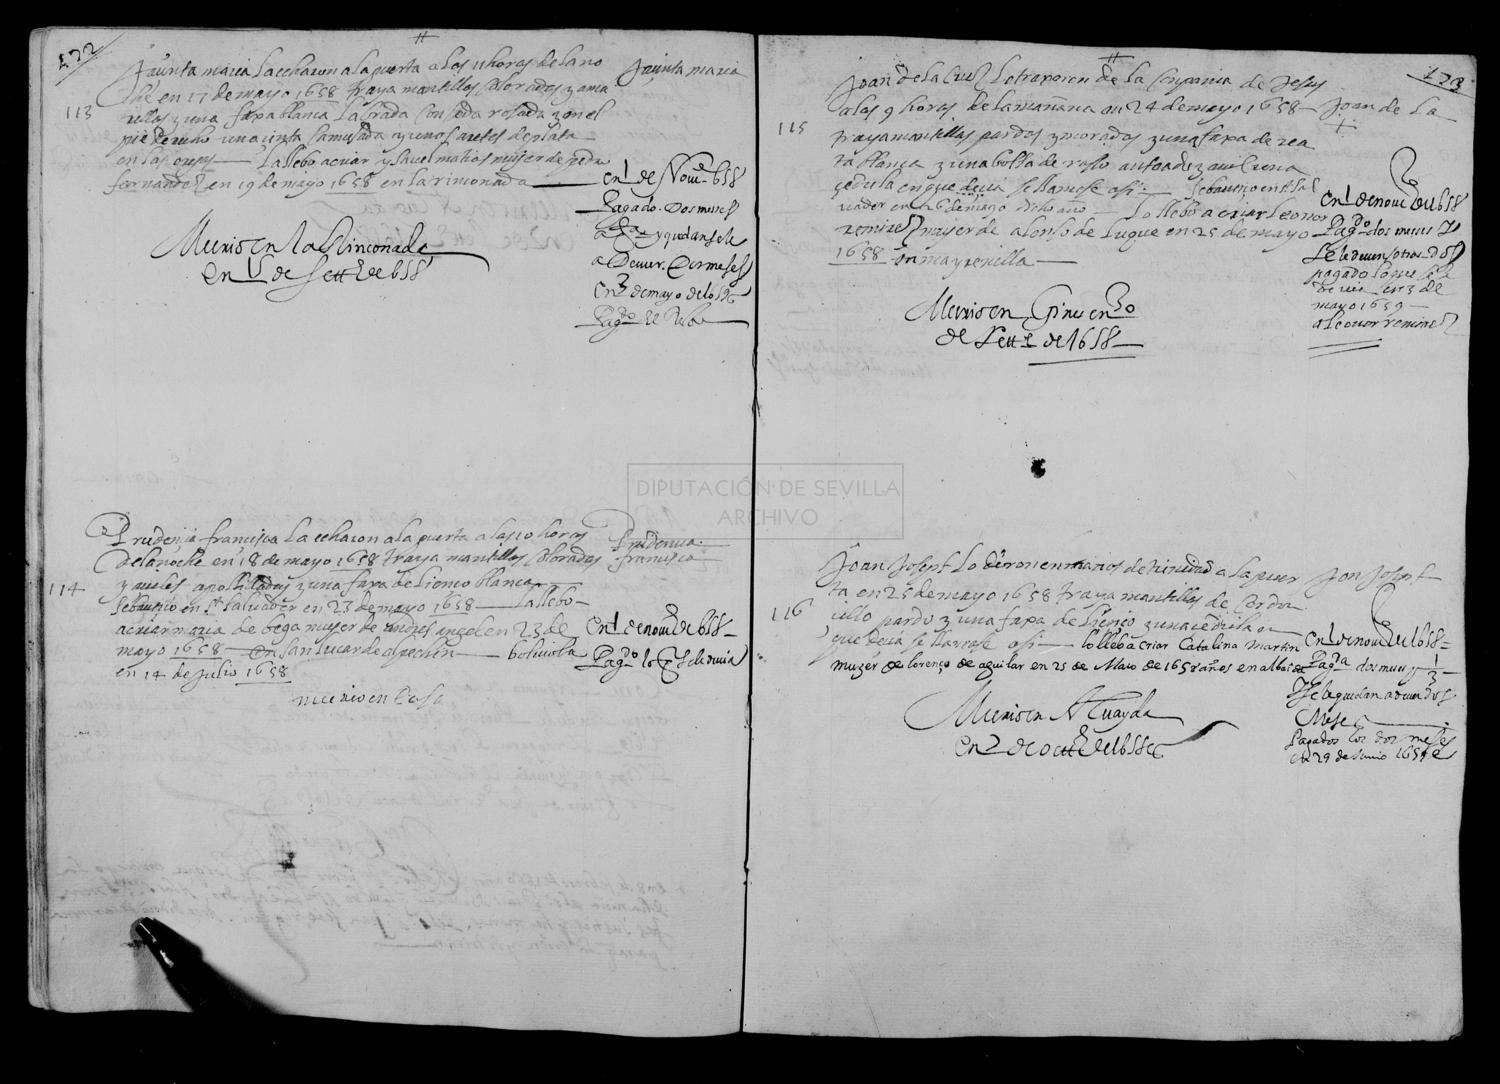 122
Jaunta maria la echaron a la puerta a las 11 horas de la no
che en 17 de mayo 1658 traya mantillos colorados y ama
rillos y una faxa blanca labrada con seda rosada y en el
pie derecho una cinta y unos
en las orejas — la llebo a criar ysavel matios muger de pedro
fernandez en 19 de mayo 1658 en la rinconada
113
Jaunta maria
en 1 de Nove de 658
Pagado. Dos meses
y quedansele
a Dever. Dos meses
en 3 de mayo de 1659
Pago
Murio en la Rinconada
en 15 de Settre de 658
Prudencia francisca la echaron a la puerta a las 10 horas
de la noche en 18 de mayo 1658 traya mantillos colorados
y açules apolillados y una faxa de lienço blanca
se bautiço en St salvador en 23 de mayo 1658 — la llebo
a criar maria de bega muger de andres angel en 23 de
mayo 1658 — en san lucar de alpechin — bolviola
en 14 de Julio 1658
114
Prudencia
francisca
en 1 de nove de 658
Pago lo q se le devia
murio en Casa
123
Joan de la Cruz le traxeron de la Conpania de Jesus
a las 9 horas de la mañana en 24 de mayo 1658
traya mantillas pardos y morados y una faxa de rea
ta blanca y una bolsa de raso y una
çedula en que decia se llamase asi — se bautiço en St Sal
vador en 26 de mayo dicho año — lo llebo a criar Leonor
remires muger de alonso de luque en 25 de mayo
1658 en mayrenilla
115
Joan de la
+
en 1 de nove de 1658
Pago dos meses y
se le deven otros dos
pagado lo que se le
devia en 3 de
mayo 1659
a leonor remires
Murio en Gines en 30
de Settre de 1658
Joan Joseph lo dieron en manos de trinidad a la puer
ta en 25 de mayo 1658 traya mantillos de cordon
cillo pardo y una faxa de lienço y una cedula en
que decia se llamase asi — lo lleba a criar Catalina martin
muger de lorenço de aguilar en 25 de Maio de 1658 años en
116
Jon Joseph
en 1 de nove de 1658
Paga dos meses y 1/3
y se le quedan a dever dos
Meses
Pagados los dos meses
en 29 de Junio 1659
Murio en
en 2 de octe de 1658
DIPUTACIÓN DE SEVILLA
ARCHIVO